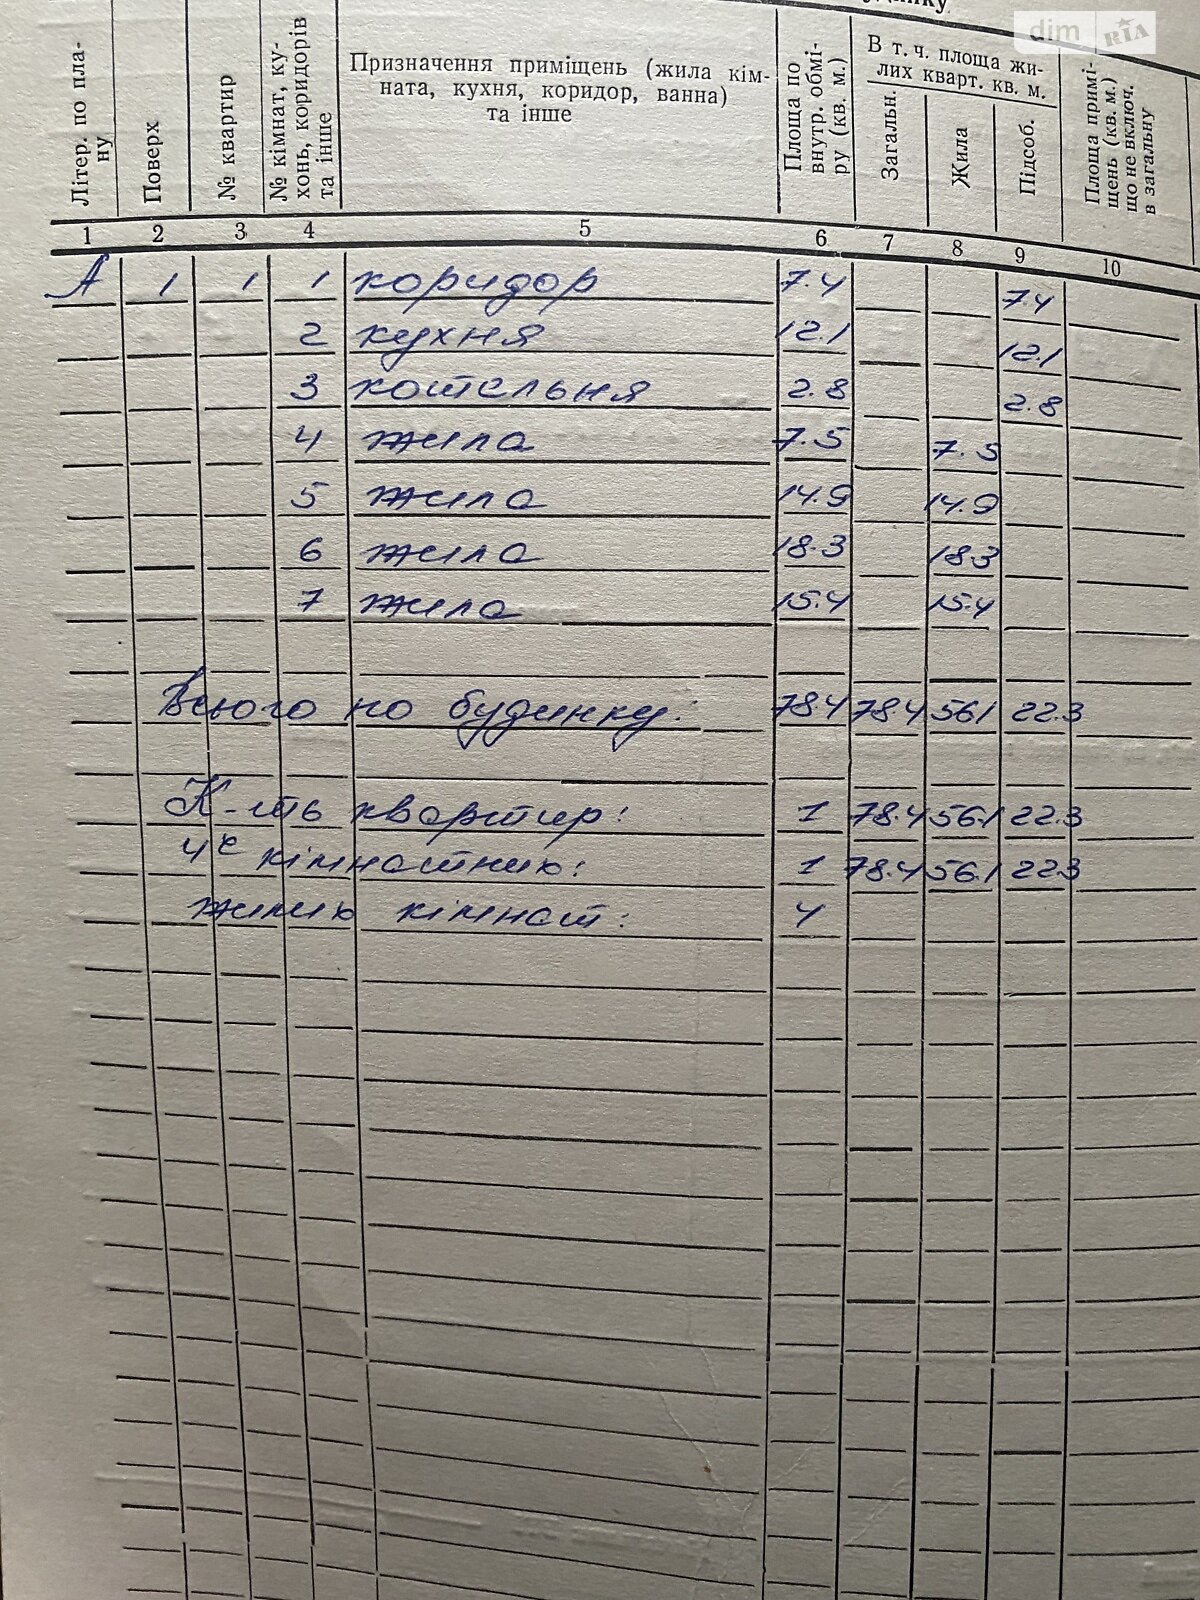 dim RIA
Літер. по пла-
ну
Поверх
№ квартир
№ кімнат, ку-
хонь, коридорів
та інше
Призначення приміщень (жила кім-
ната, кухня, коридор, ванна)
та інше
Площа по
внутр. обмі-
ру (кв. м.)
В т. ч. площа жи-
лих кварт. кв. м.
Загальн.
Жила
Підсоб.
Площа примі-
щень (кв. м.)
що не включ.
в загальну
1 2 3 4 5 6 7 8 9 10
А 1 1 1 коридор 7.4 7.4
2 кухня 12.1 12.1
3 котельня 2.8 2.8
4 жила 7.5 7.5
5 жила 14.9 14.9
6 жила 18.3 18.3
7 жила 15.4 15.4
Всього по будинку: 78.4 78.4 56.1 22.3
К-ть квартир: 1 78.4 56.1 22.3
4х кімнатних: 1 78.4 56.1 22.3
жилих кімнат: 4